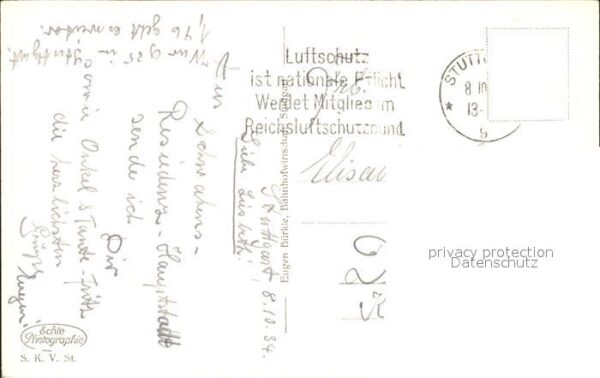 Luftschutz
ist nationale Pflicht
Werdet Mitglied im
Reichsluftschutzbund
STUTT
8 10
13-
9
Stuttgart 8.10.34.
Liebe
Aus Schwabens-
Residenz-Hauptstadt
sende ich
Dir
sowie Onkel & Tante
die herzlichsten
Grüße
Eugen.
War 9 25 in Stuttgart,
1,46 geht es weiter.
Elisa
Eugen Bürkle, Bahnhofwirtschaft, Stuttgart
Echte
Photographie
S. K. V. St.
privacy protection
Datenschutz